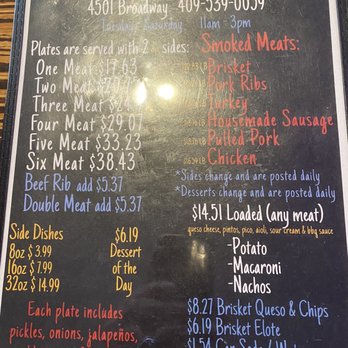 4501 Broadway 409-539-0059
Tuesday - Saturday 11am - 3pm
Plates are served with 2 sides:
One Meat $17.63
Two Meat
Three Meat
Four Meat $29.07
Five Meat $33.23
Six Meat $38.43
Beef Rib add $5.37
Double Meat add $5.37
Side Dishes
8oz $3.99
16oz $7.99
32oz $14.99
$6.19
Dessert
of the
Day
Each plate includes
pickles, onions, jalapeños,
Smoked Meats:
Brisket
Pork Ribs
Turkey
Housemade Sausage
Pulled Pork
Chicken
*Sides change and are posted daily
*Desserts change and are posted daily
$14.51 Loaded (any meat)
queso cheese, pintos, pico, aioli, sour cream & bbq sauce
-Potato
-Macaroni
-Nachos
$8.27 Brisket Queso & Chips
$6.19 Brisket Elote